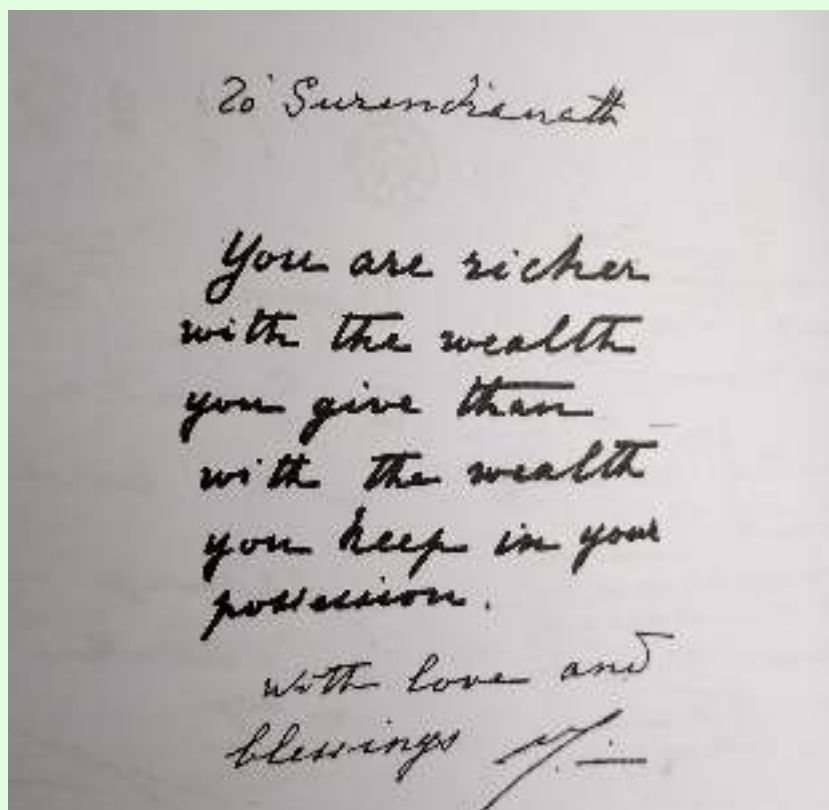 To Surendranath
You are richer
with the wealth
you give than
with the wealth
you keep in your
possession.
with love and
blessings